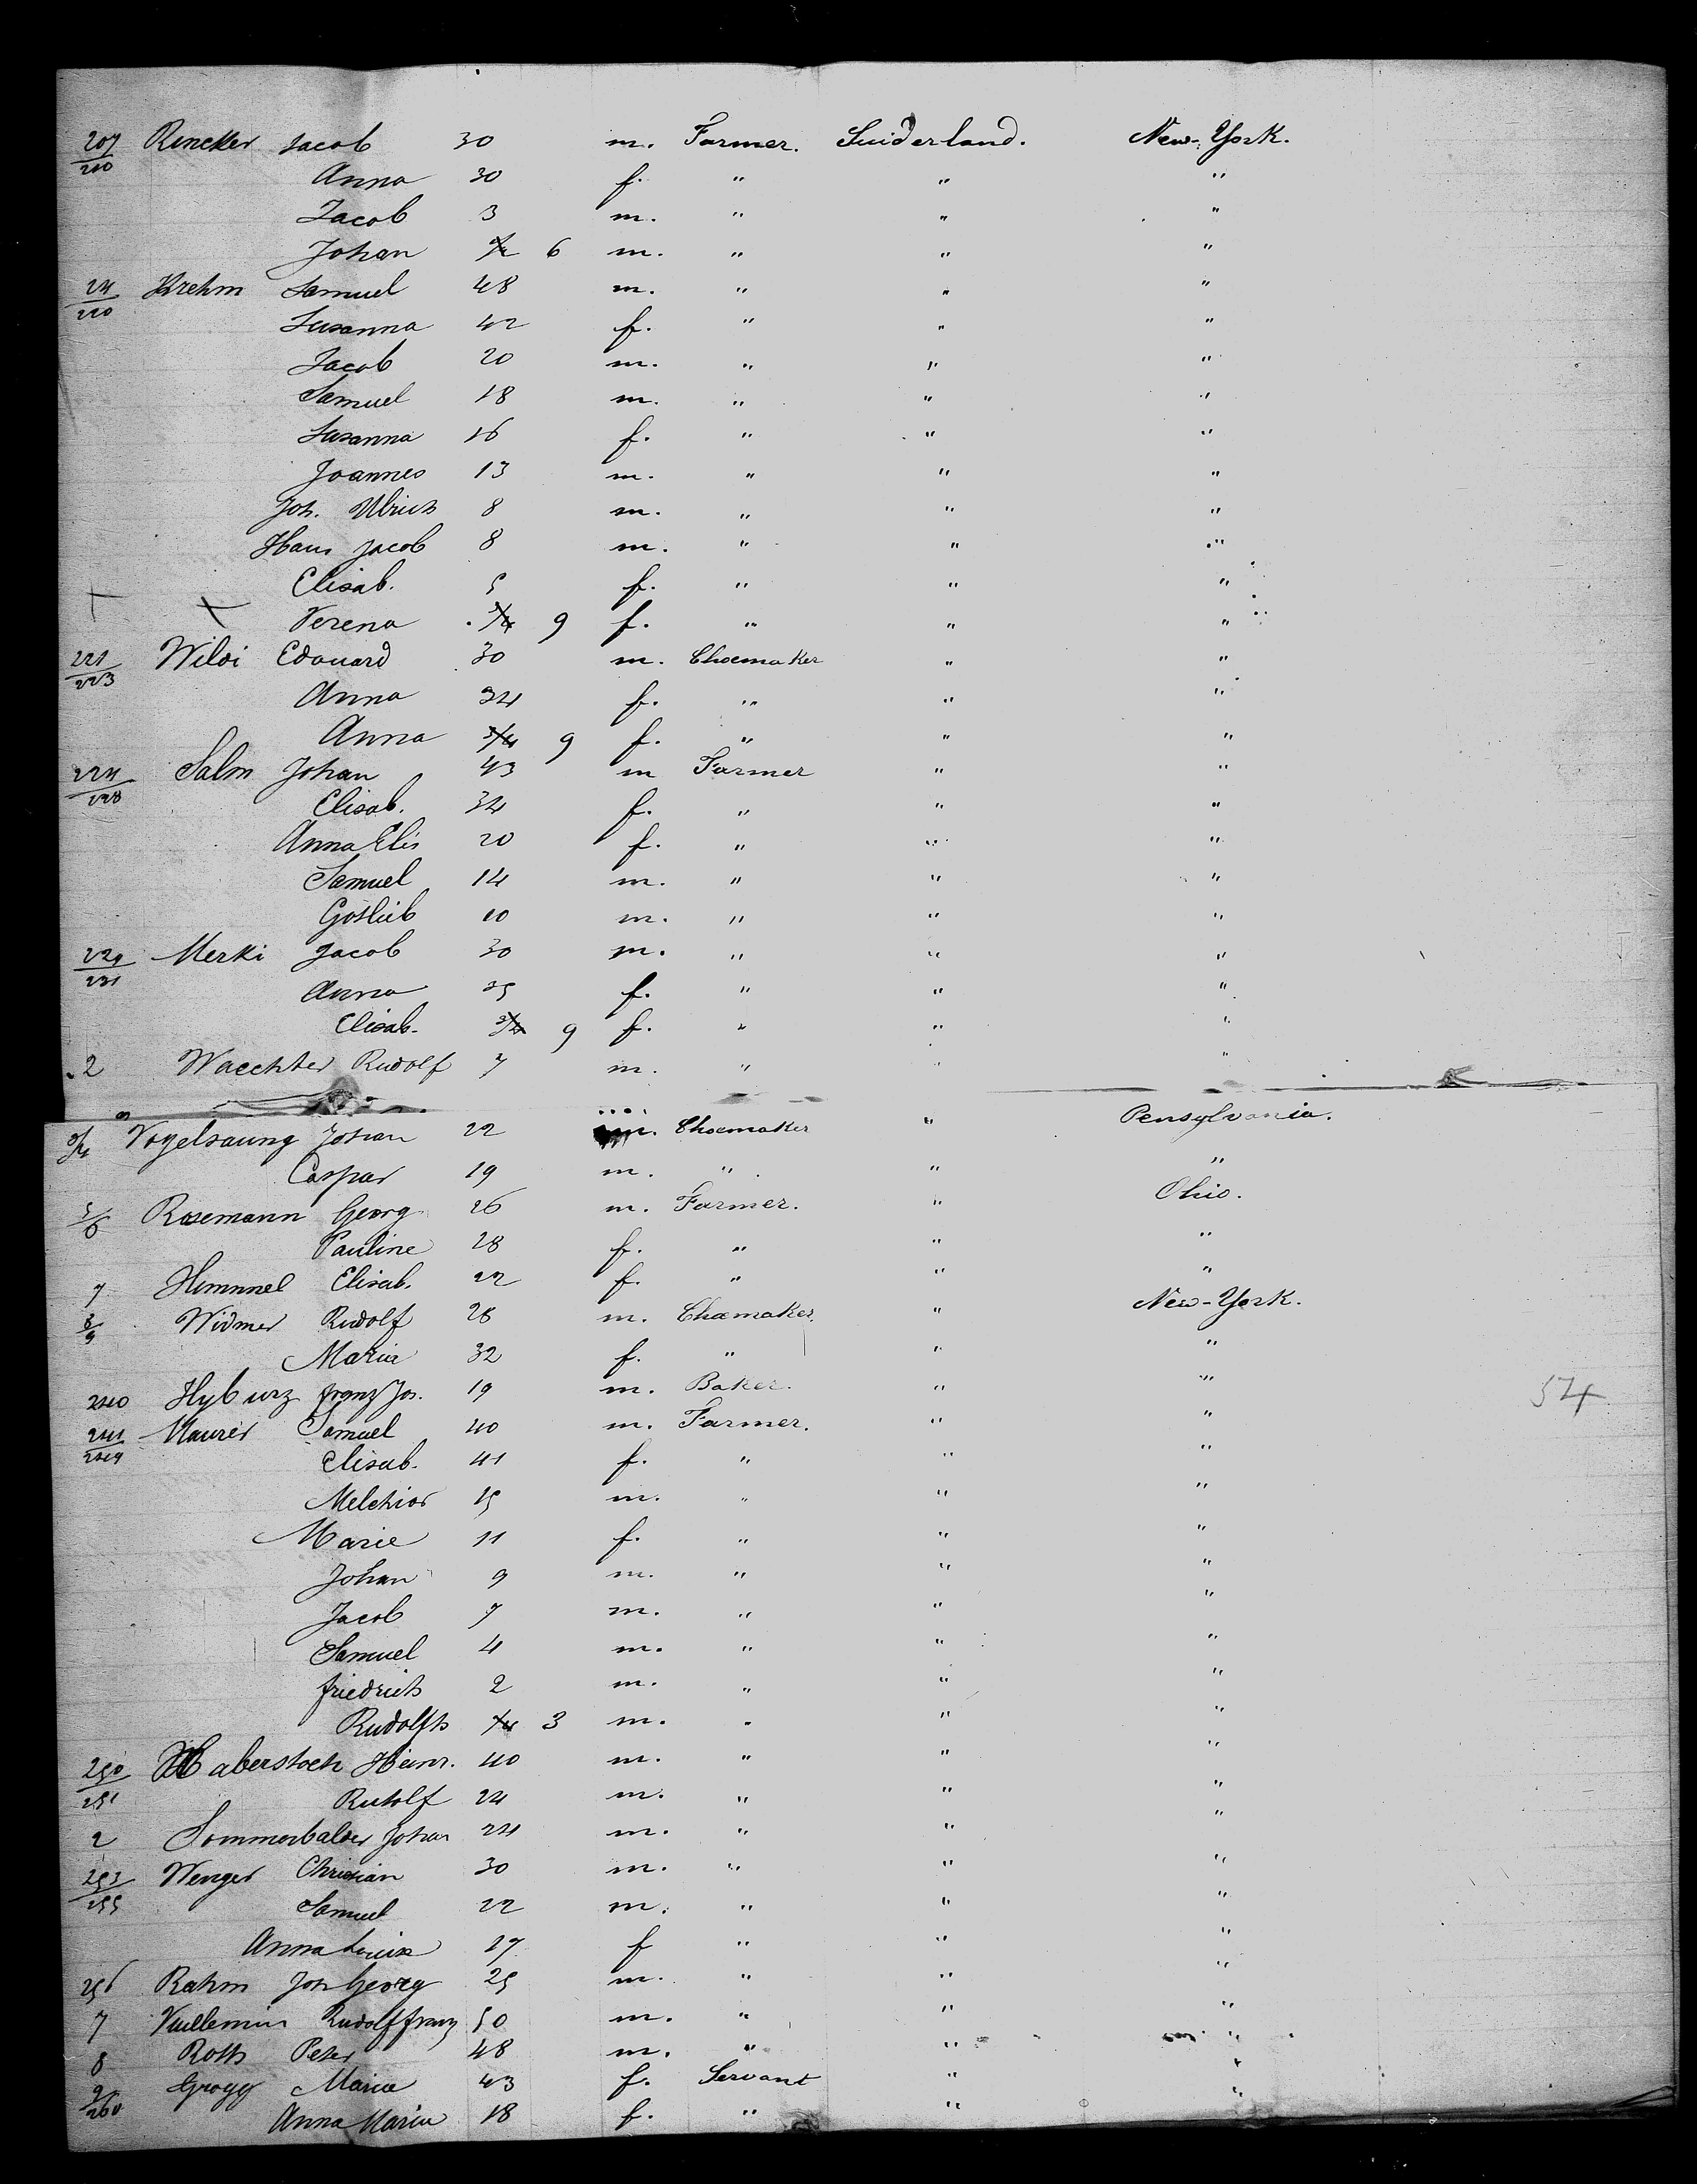 207/210 Rencker Jacob 30 m. Farmer. Suiderland. New-York.
Anna 30 f. " " "
Jacob 3 m. " " "
Johan 6 m. " " "
211/220 Krehm Samuel 48 m. " " "
Susanna 42 f. " " "
Jacob 20 m. " " "
Samuel 18 m. " " "
Susanna 16 f. " " "
Joannes 13 m. " " "
Joh. Ulrich 8 m. " " "
Hans Jacob 8 m. " " "
Elisab. 5 f. " " "
Verena 3/4 9 f. " " "
221/223 Wildi Edouard 30 m. Choemaker " "
Anna 34 f. " " "
Anna 3/4 9 f. " " "
224/228 Salm Johan 43 m Farmer " "
Elisab. 34 f. " " "
Anna Elis 20 f. " " "
Samuel 14 m. " " "
Gotlieb 10 m. " " "
229/231 Merki Jacob 30 m. " " "
Anna 25 f. " " "
Elisab. 3/4 9 f. " " "
2 Waechter Rudolf 7 m. " " "
3/4 Vogelsaung Johan 22 m. Choemaker " Pensylvania.
Caspar 19 m. " " "
5/6 Rosemann Georg 26 m. Farmer. " Ohio.
Pauline 28 f. " " "
7 Himmel Elisab. 22 f. " " "
8/9 Widmer Rudolf 28 m. Choemaker. " New-York.
Maria 32 f. " " "
240 Hyburz franz Jos. 19 m. Baker. " "
54
241/249 Maurer Samuel 40 m. Farmer. " "
Elisab. 41 f. " " "
Melchior 15 m. " " "
Marie 11 f. " " "
Johan 9 m. " " "
Jacob 7 m. " " "
Samuel 4 m. " " "
friedrich 2 m. " " "
Rudolfh 1/4 3 m. " " "
250/251 Haberstoch Heinr. 40 m. " " "
Rudolf 24 m. " " "
2 Sommerhalder Johan 24 m. " " "
253/255 Wenger Christian 30 m. " " "
Samuel 22 m. " " "
Anna Louise 17 f " " "
256 Rahm Joh Georg 25 m. " " "
7 Vuillemin Rudolf franz 50 m. " " "
8 Roth Peter 48 m. " " "
9/260 Grogg Marie 43 f. Servant " "
Anna Maria 18 f. " " "